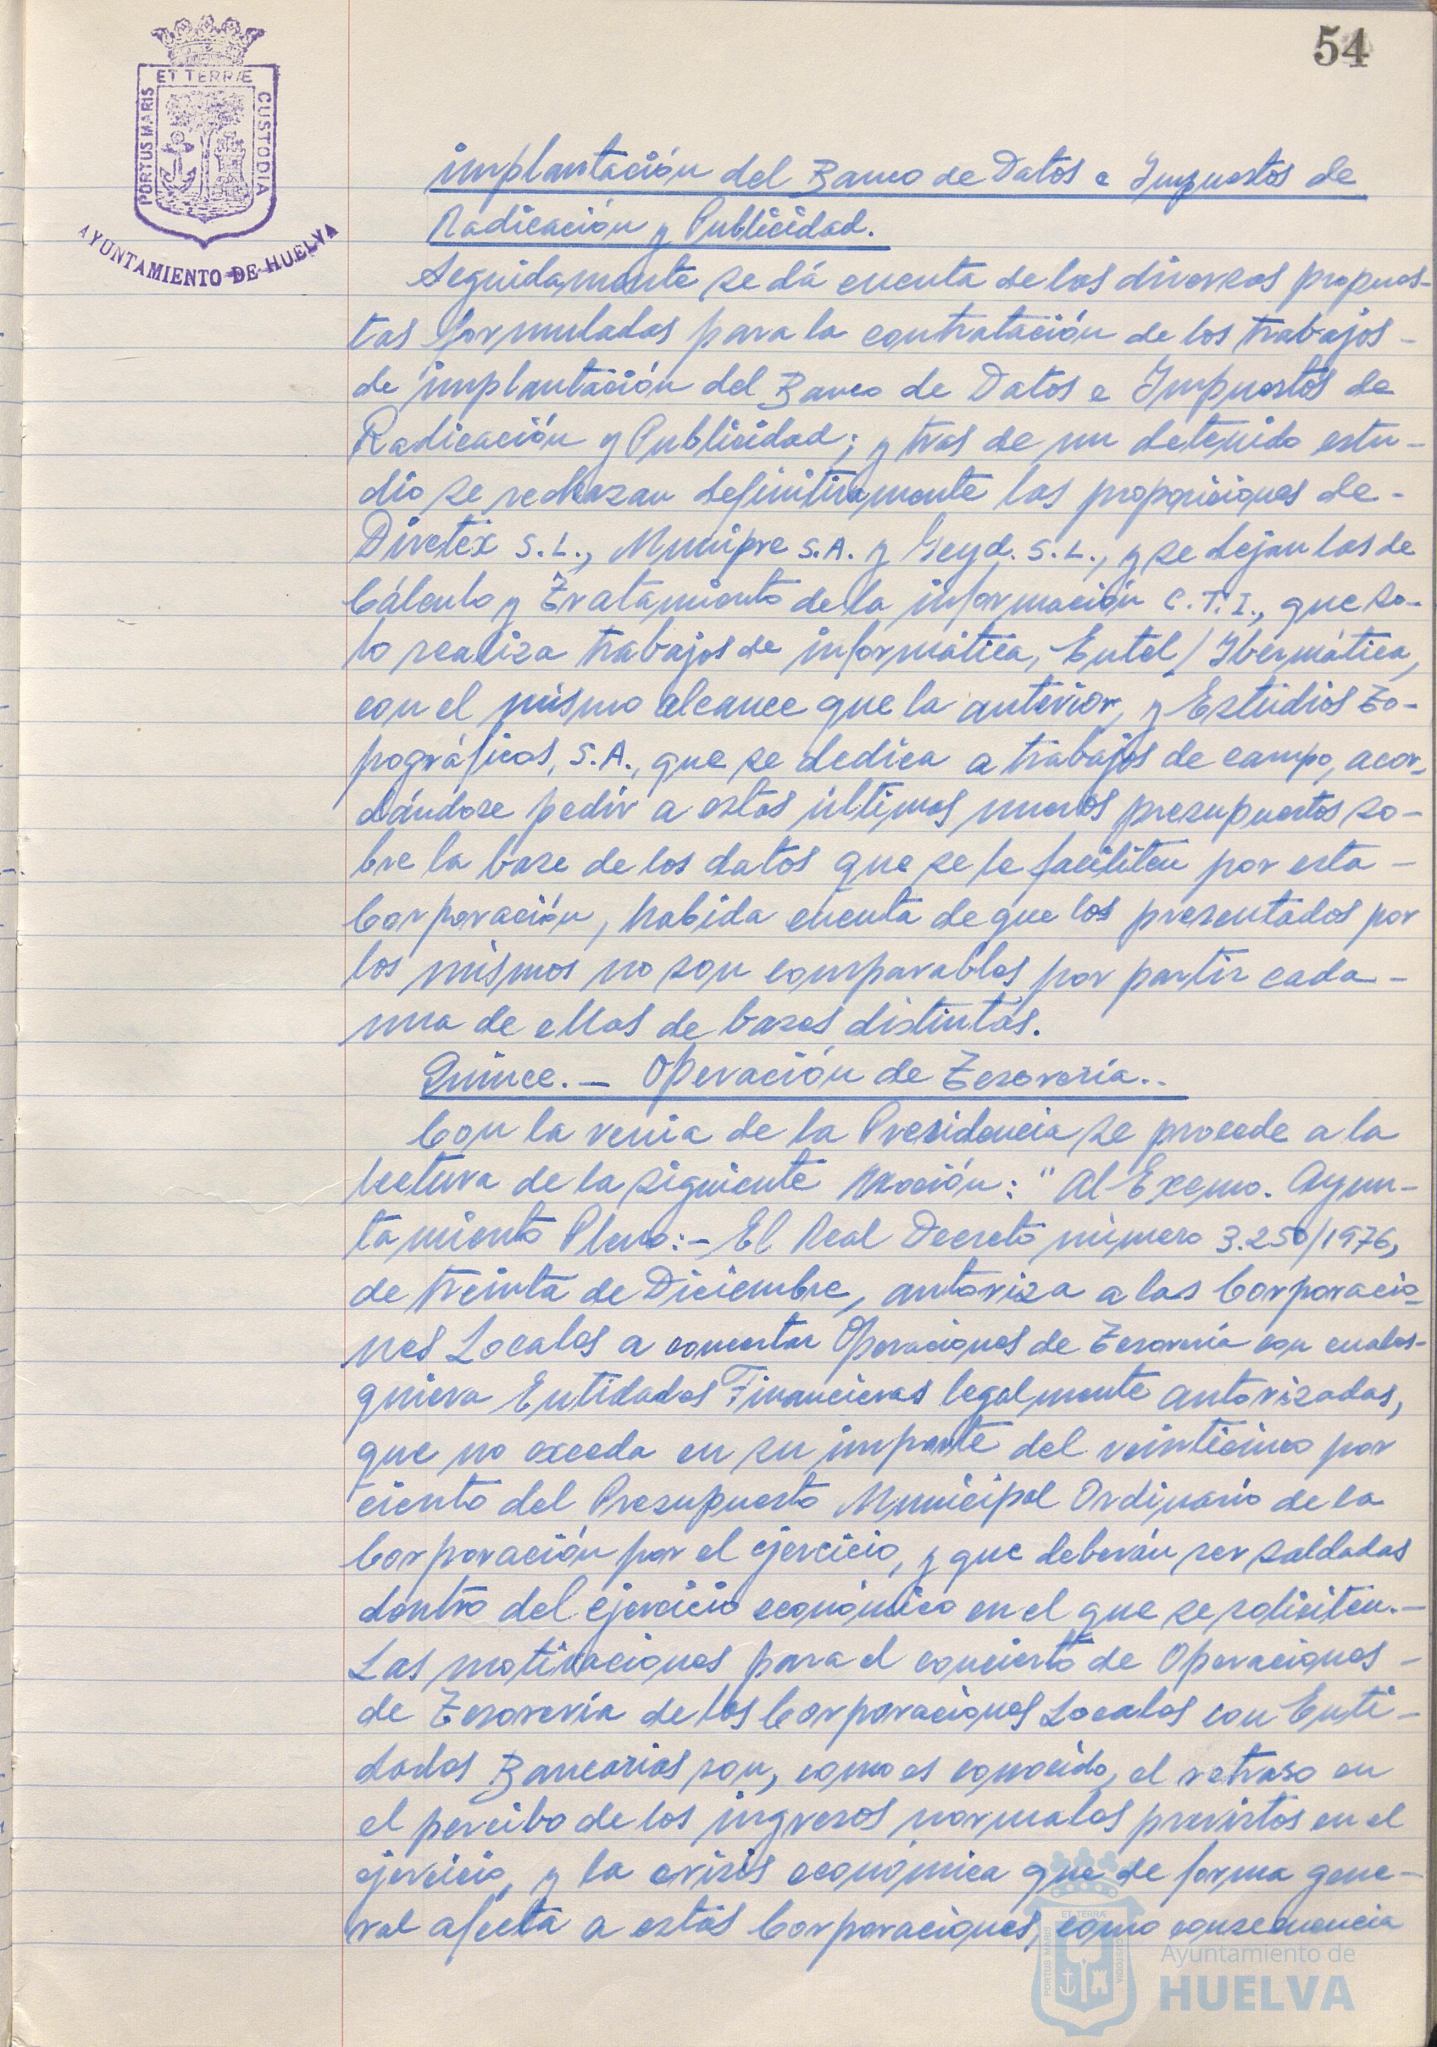 54
ET TERRÆ
PORTUS MARIS
CUSTODIA
AYUNTAMIENTO DE HUELVA
implantación del Banco de Datos e Impuestos de
Radicación y Publicidad.
Seguidamente se dá cuenta de las diversas propues-
tas formuladas para la contratación de los trabajos -
de implantación del Banco de Datos e Impuestos de
Radicación y Publicidad; y tras de un detenido estu-
dio se rechazan definitivamente las proposiciones de -
Divetex S.L., Munipre S.A. y Geyd. S.L., y se dejan las de
Cálculo y Tratamiento de la información C.T.I., que so-
lo realiza trabajos de informática, Entel/Ibermática,
con el mismo alcance que la anterior, y Estudios To-
pográficos, S.A., que se dedica a trabajos de campo, acor-
dándose pedir a estos últimos nuevos presupuestos so-
bre la base de los datos que se le faciliten por esta -
Corporación, habida cuenta de que los presentados por
los mismos no son comparables por partir cada -
una de ellas de bases distintas.
Quince. - Operación de Tesorería..
Con la venia de la Presidencia se procede a la
lectura de la siguiente Moción: "Al Excmo. Ayun-
tamiento Pleno: - El Real Decreto número 3.250/1976,
de treinta de Diciembre, autoriza a las Corporacio-
nes Locales a concertar Operaciones de Tesorería con cuales-
quiera Entidades Financieras legalmente autorizadas,
que no exceda en su importe del veinticinco por
ciento del Presupuesto Municipal Ordinario de la
Corporación por el ejercicio, y que deberán ser saldadas
dentro del ejercicio económico en el que se soliciten. -
Las motivaciones para el concierto de Operaciones -
de Tesorería de las Corporaciones Locales con Enti-
dades Bancarias son, como es conocido, el retraso en
el percibo de los ingresos normales previstos en el
ejercicio, y la crisis económica que de forma gene-
ral afecta a estas Corporaciones, como consecuencia
ET TERRÆ
PORTUS MARIS
CUSTODIA
Ayuntamiento de
HUELVA